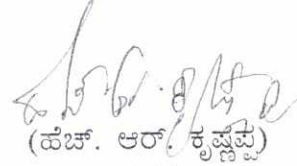 (ಹೆಚ್. ಆರ್. ಕೃಷ್ಣೆಪ್ಪ)